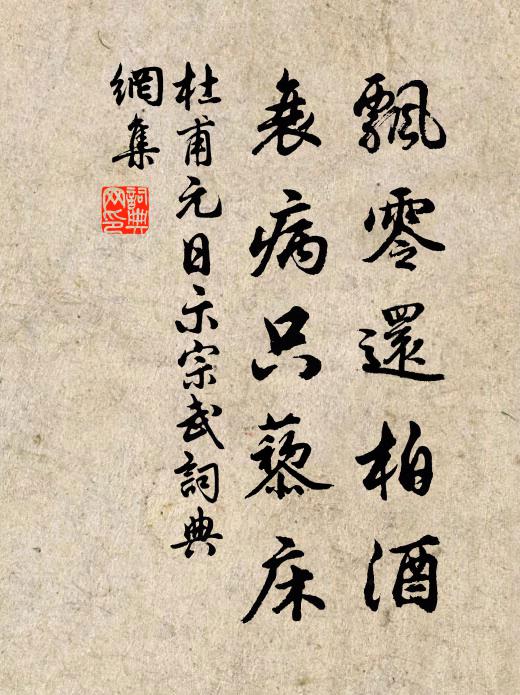 飄零還柏酒
衰病只藜床
杜甫元日示宗武詞典
網集
詞典網印